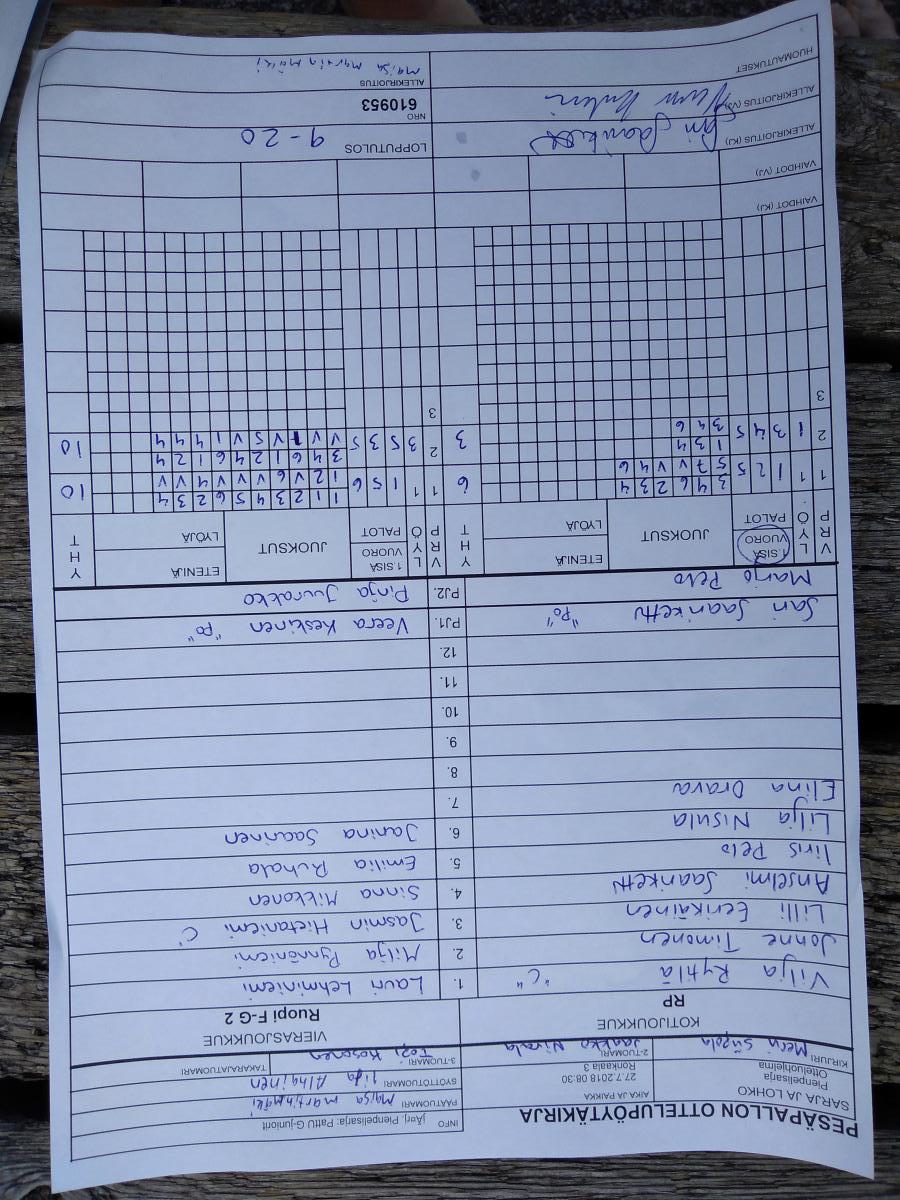 PESÄPALLON OTTELUPÖYTÄKIRJA
INFO
jAorj, Pienpelisarja: PattU G-juniorit
SARJA JA LOHKO
Pienpelisarja
Otteluohjelma
AIKA JA PAIKKA
27.7.2018 08:30
Ronkaala 3
PÄÄTUOMARI Maisa Martinmäki
SYÖTTÖTUOMARI Iida Alhainen
KIRJURI
2-TUOMARI Jaakko Nivala
3-TUOMARI Kosonen
TAKARAJATUOMARI
KOTIJOUKKUE
RP
VIERASJOUKKUE
Ruopi F-G 2
Vilja Rytilä "C" 1. Lauri Lehminiemi
Jonne Timonen 2. Milja Pynnöniemi
Lilli Eerikäinen 3. Jasmin Hietaniemi C
Anselmi Saariketti 4. Sinna Mikkonen
Iiris Pelo 5. Emilia Ruhala
Lilja Nisula 6. Janina Saarinen
Elina Orava 7.
8.
9.
10.
11.
12.
Sari Saariketti "Po" PJ1. Veera Keskinen "Po"
Marjo Pelo PJ2. Pinja Juurakko
VRP LYÖ 1.SISÄ VUORO PALOT JUOKSUT ETENIJÄ LYÖJÄ YHT VRP LYÖ 1.SISÄ VUORO PALOT JUOKSUT ETENIJÄ LYÖJÄ YHT
1 1 1 2 5 3 4 6 2 3 4 6 1 1 1 5 6 1 1 2 3 4 5 6 2 3 4 10
5 7 v v 4 6 1 2 v 6 v v v 4 v v
2 1 3 4 5 1 3 4 3 2 3 5 3 5 3 4 6 1 2 4 6 1 2 4 10
3 4 6 v v 1 v 5 v 1 4 4 4
3 3
VAIHDOT (KJ)
VAIHDOT (VJ)
ALLEKIRJOITUS (KJ)
LOPPUTULOS 9-20
ALLEKIRJOITUS (VJ)
NRO
610953
HUOMAUTUKSET
ALLEKIRJOITUS
Maisa Martinmäki